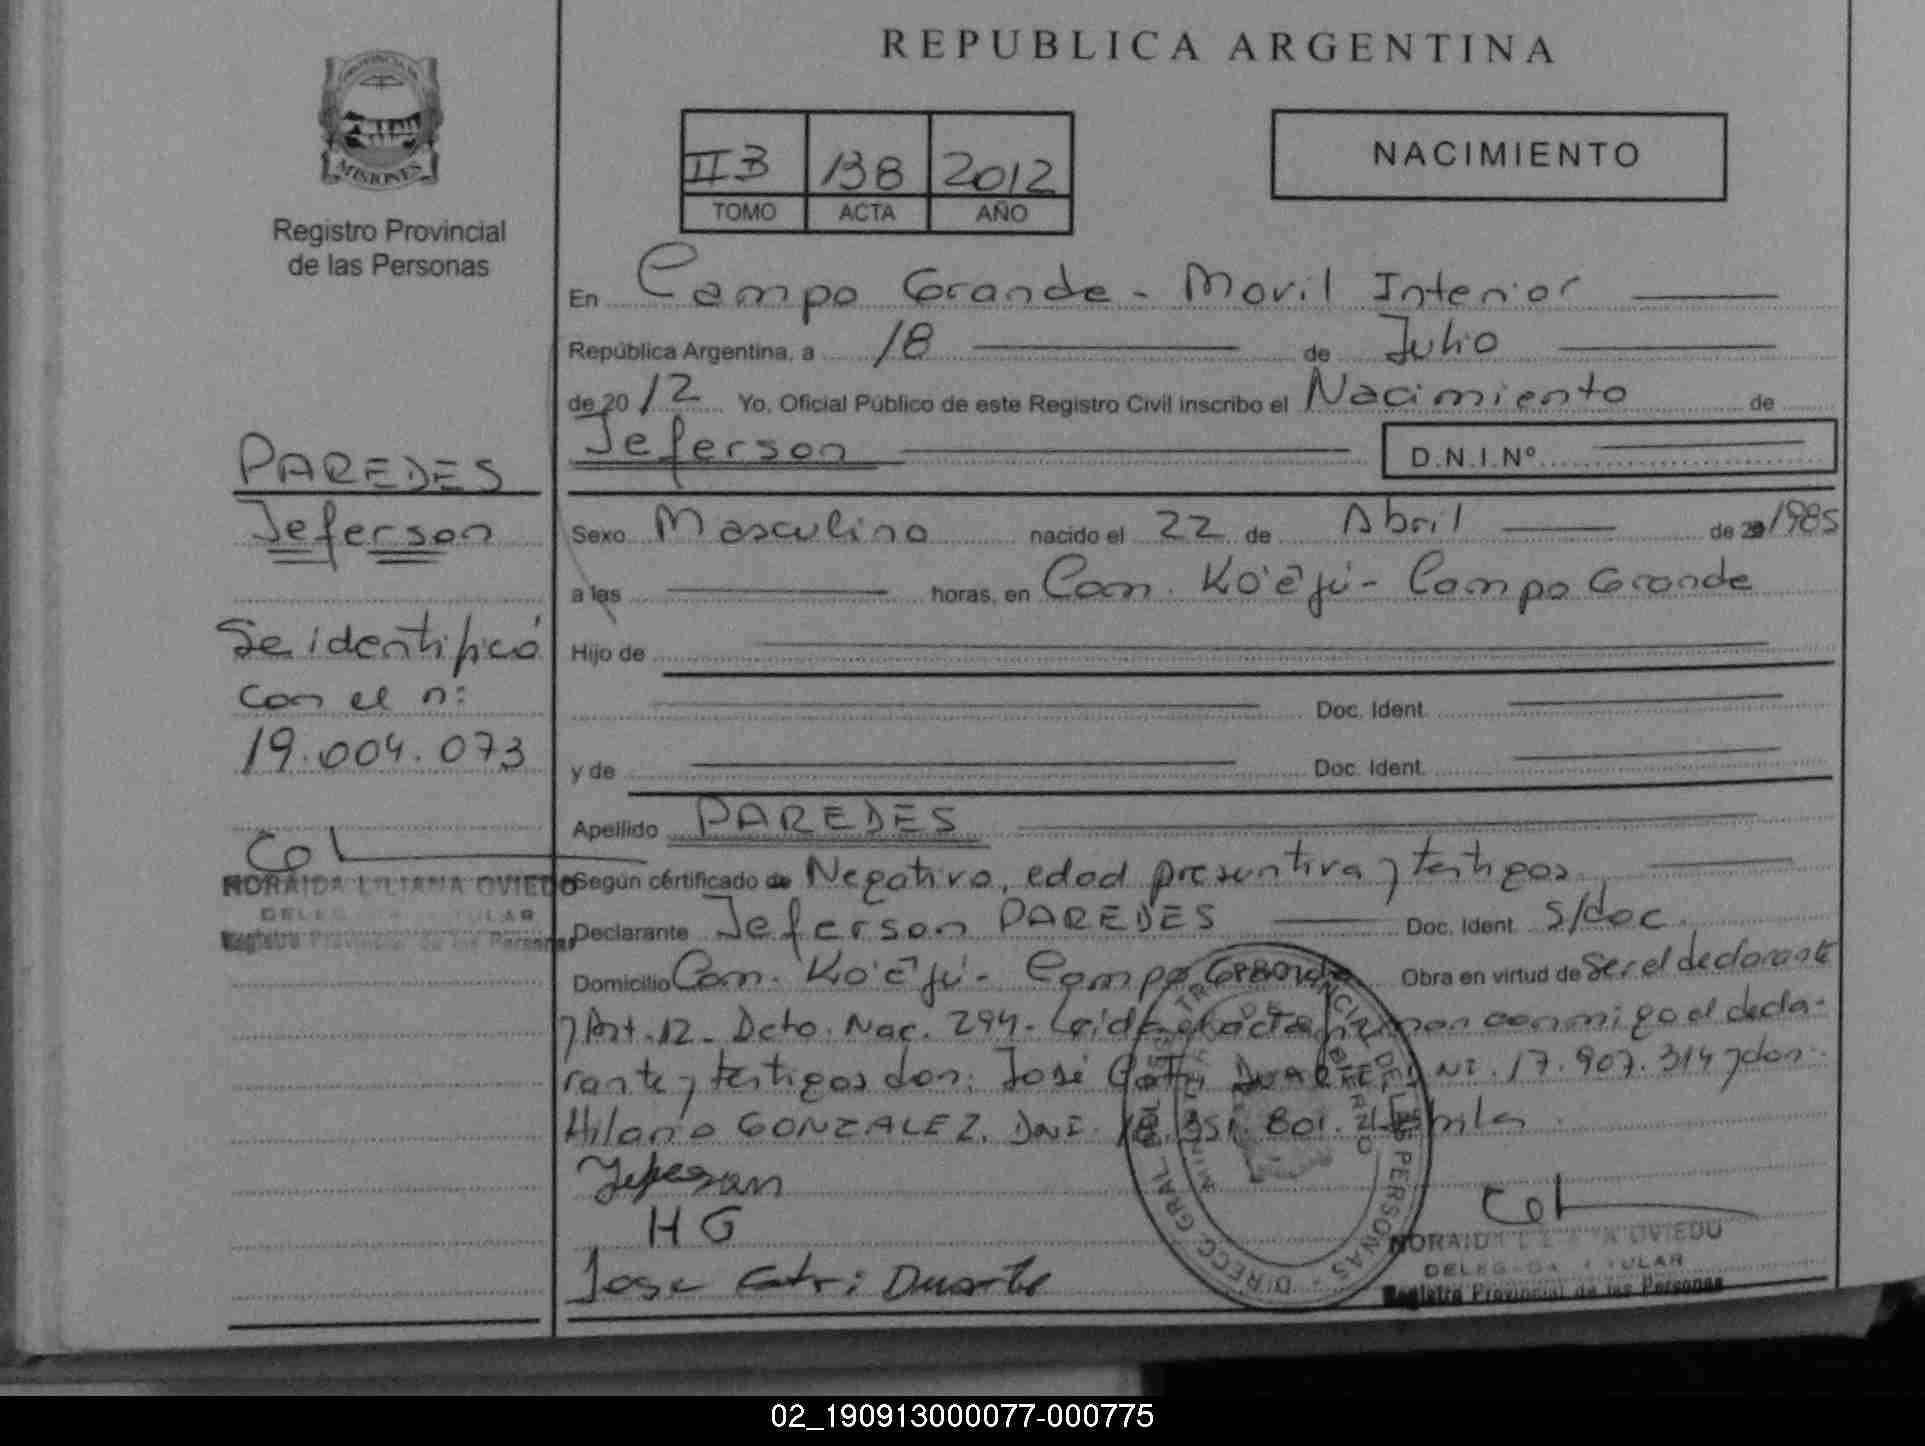 REPUBLICA ARGENTINA
PROVINCIA DE
MISIONES
Registro Provincial
de las Personas
II B 138 2012
TOMO ACTA AÑO
NACIMIENTO
En Campo Grande - Movil Interior
República Argentina, a 18 de Julio
de 2012 Yo, Oficial Público de este Registro Civil inscribo el Nacimiento de
Jeferson D.N.I.Nº
PAREDES
Jeferson
Se identificó
con el n:
19.004.073
NORAIDA LILIANA OVIEDO
DELEGADA TITULAR
Registro Provincial de las Personas
Sexo Masculino nacido el 22 de Abril de 1985
a las horas, en Com. Ko'ẽ jú - Campo Grande
Hijo de
Doc. Ident.
y de Doc. Ident.
Apellido PAREDES
Según certificado de Negativo, edad presuntiva y testigos
Declarante Jeferson PAREDES Doc. Ident. s/doc
Domicilio Com. Ko'ẽ jú - Campo Grande Obra en virtud de ser el declarante
y Art. 12 - Dcto. Nac. 294 - Leida el acta firman conmigo el decla-
rante y testigos don: José Catri DUARTE DNI. 17.907.314 y don
Hilario GONZALEZ. DNI. 18.351.801.
Jeferson
H G
Jose Catri Duarte
DIRECC. GRAL. DEL REGISTRO PROVINCIAL DE LAS PERSONAS
NORAIDA LILIANA OVIEDO
DELEGADA TITULAR
Registro Provincial de las Personas
02_190913000077-000775